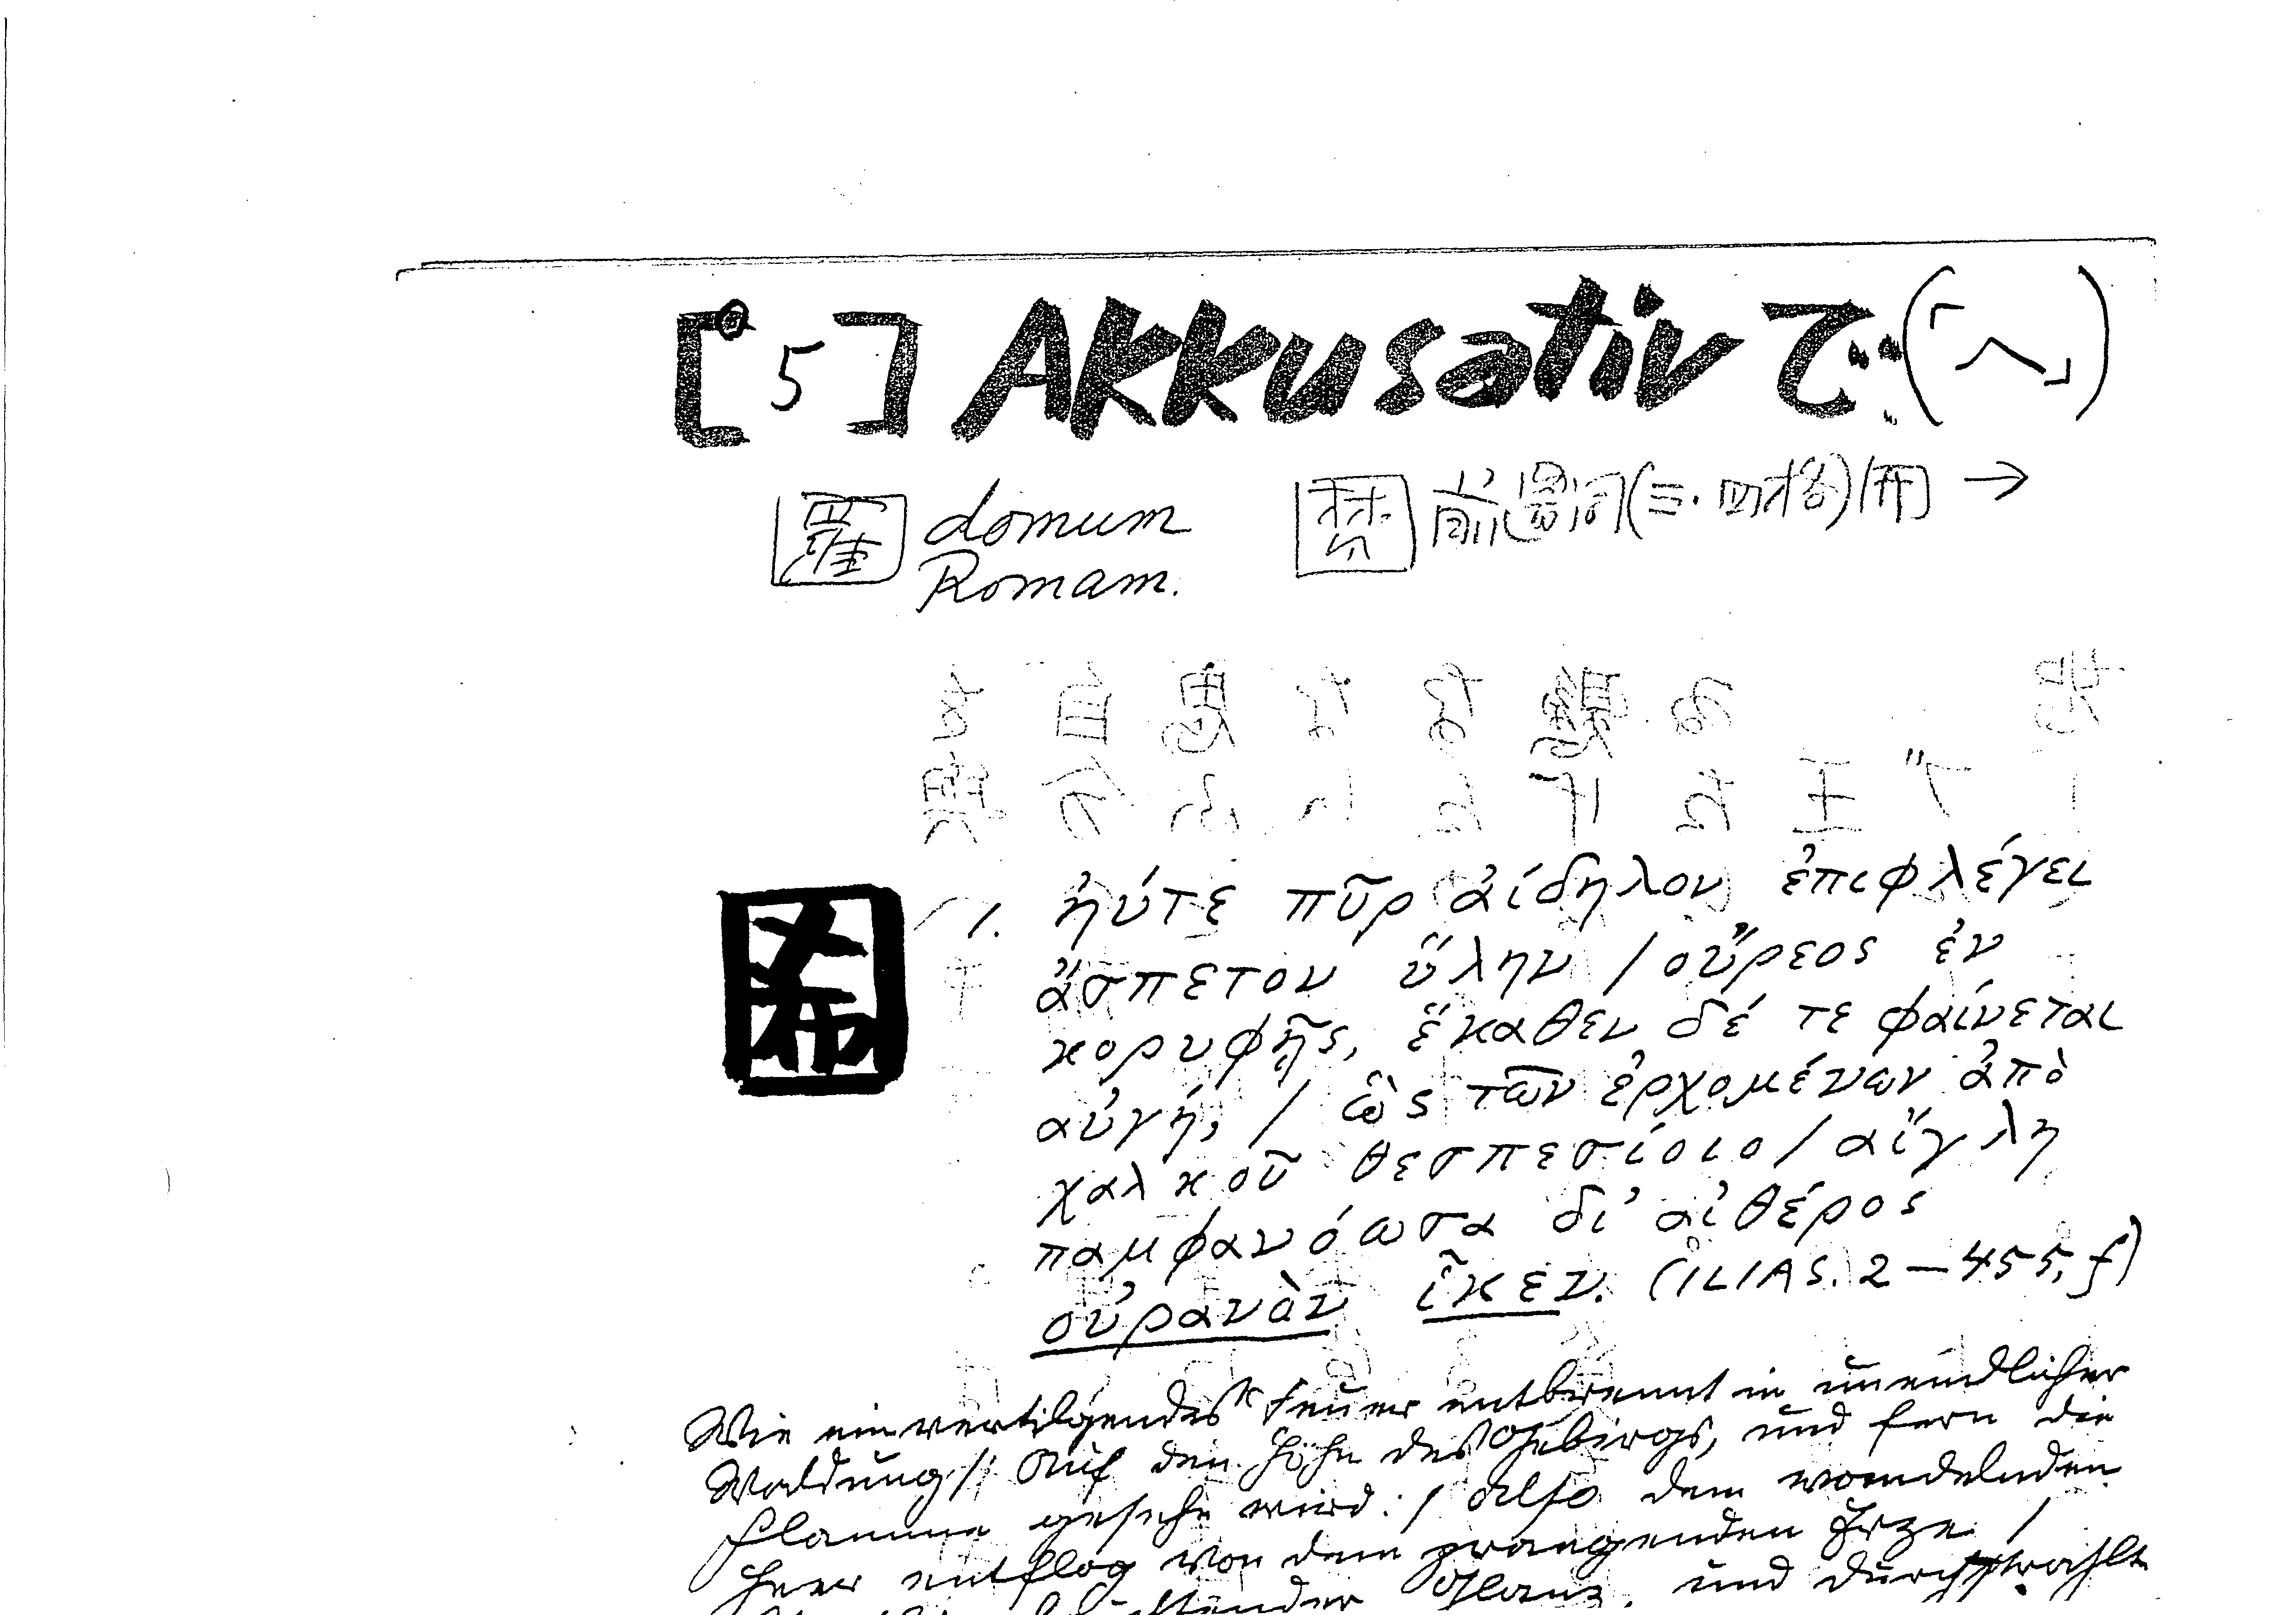 [5] Akkusativ で…(「へ」)
羅 domum
Romam.
禁 前置詞(三・四格)用 →
1. ἠύτε πῦρ ἀίδηλον ἐπιφλέγει
ἄσπετον ὕλην / οὔρεος ἐν
κορυφῇς, ἕκαθεν δέ τε φαίνεται
αὐγή, / ὣς τῶν ἐρχομένων ἀπὸ
χαλκοῦ θεσπεσίοιο / αἴγλη
παμφανόωσα δι’ αἰθέρος
οὐρανὸν ἷκεν. (ILIAS. 2—455, f)
希
Wie ein vertilgendes Feuer entbrennt in unendlicher
Waldung / Auf den Höhn des Gebirgs, und fern die
Flamme gesehn wird: / Also dem wandelnden
Heer entflog von dem prangenden Erze /
Glanz, und durchstrahlt